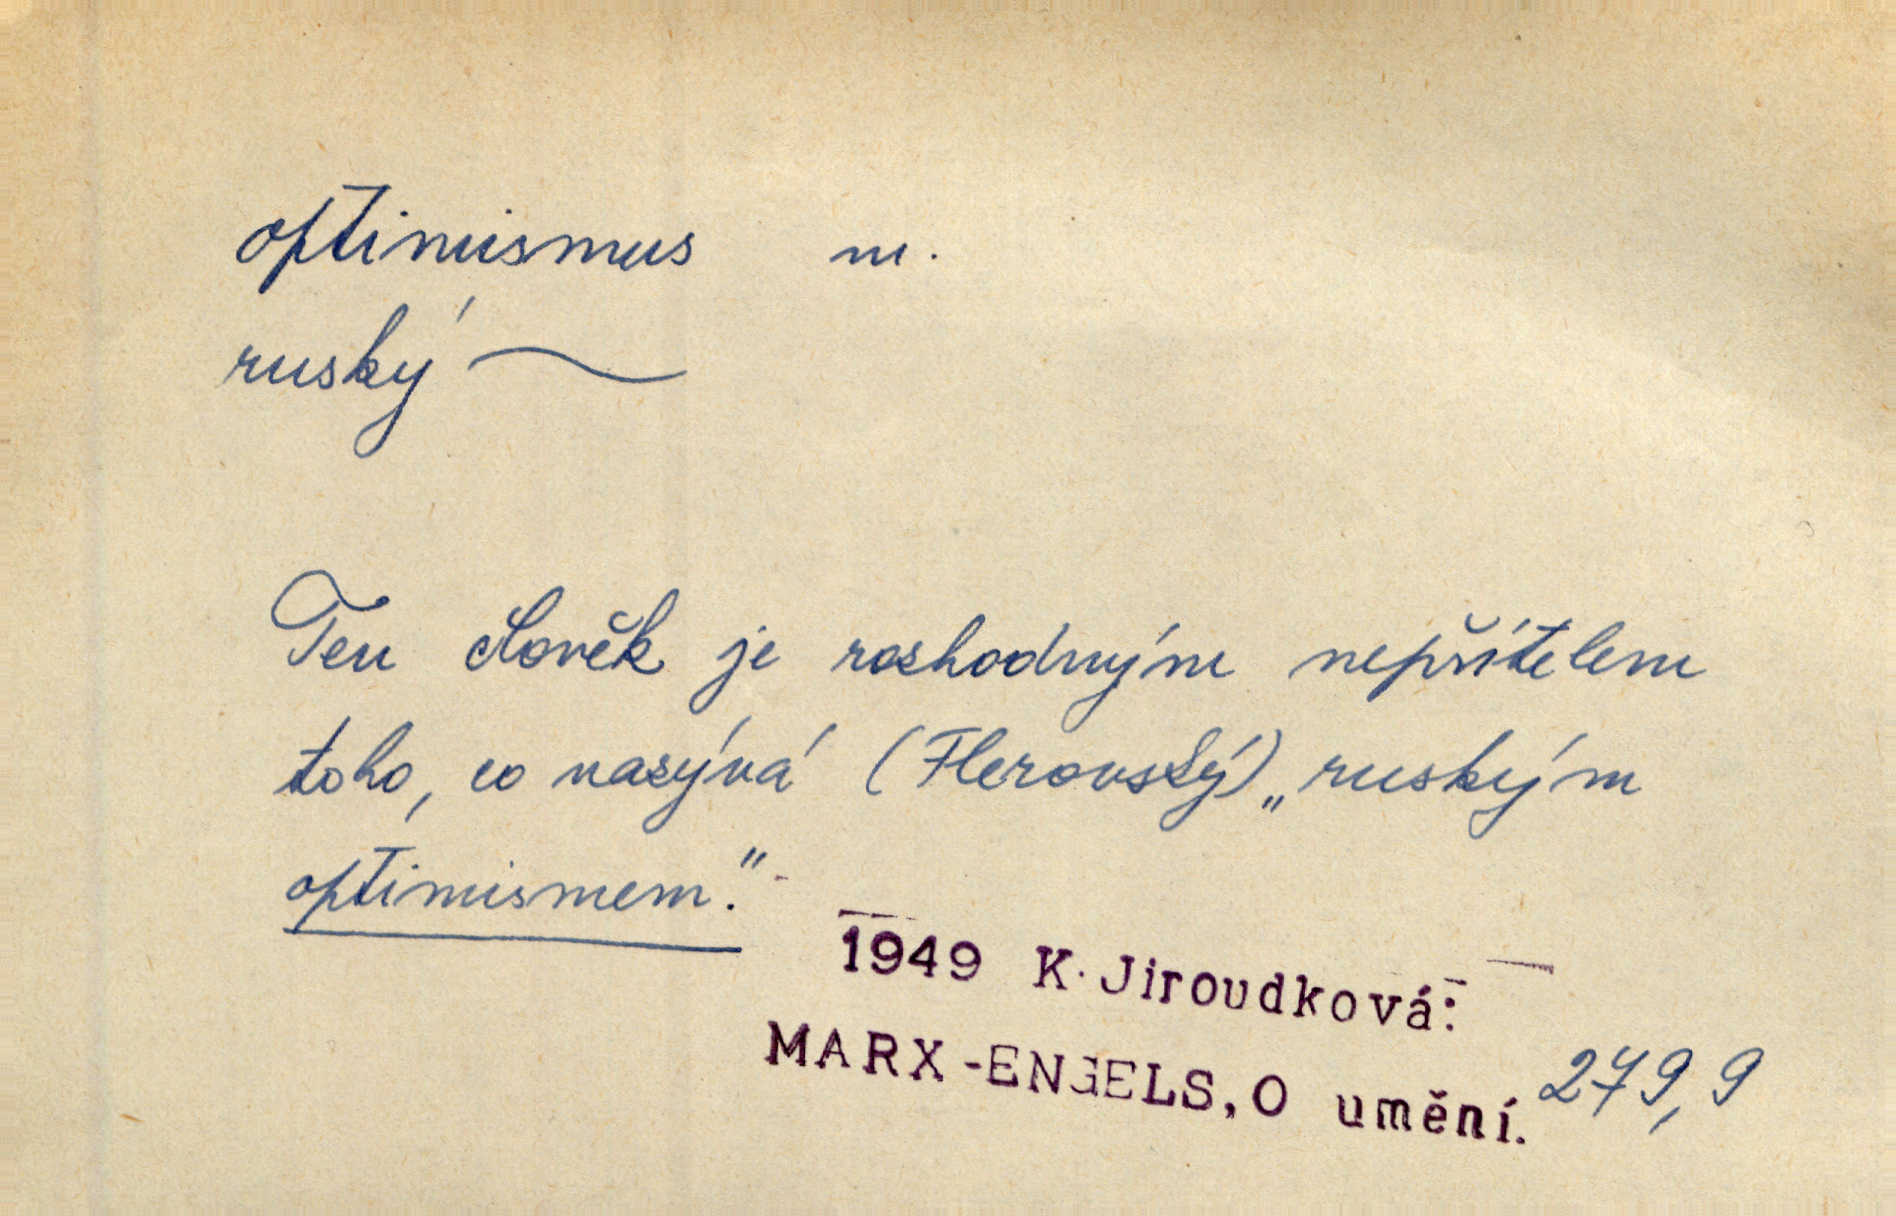 optimismus m.
ruský ~
Ten člověk je rozhodným nepřítelem
toho, co nazývá (Flerovský) „ruským
optimismem."
1949 K. Jiroudková:
MARX-ENGELS, O umění. 279,9